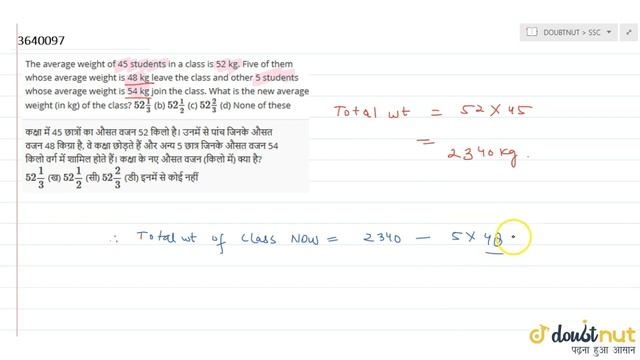 DOUBTNUT > SSC
3640097
The average weight of 45 students in a class is 52 kg. Five of them
whose average weight is 48 kg leave the class and other 5 students
whose average weight is 54 kg join the class. What is the new average
weight (in kg) of the class? 52 1/3 (b) 52 1/2 (c) 52 2/3 (d) None of these
कक्षा में 45 छात्रों का औसत वजन 52 किलो है। उनमें से पांच जिनके औसत
वजन 48 किग्रा है, वे कक्षा छोड़ते हैं और अन्य 5 छात्र जिनके औसत वजन 54
किलो वर्ग में शामिल होते हैं। कक्षा के नए औसत वजन (किलो में) क्या है?
52 1/3 (ख) 52 1/2 (सी) 52 2/3 (डी) इनमें से कोई नहीं
Total wt = 52 × 45
= 2340 kg.
∴ Total wt of class Now = 2340 – 5 × 48
doubtnut
पढ़ना हुआ आसान